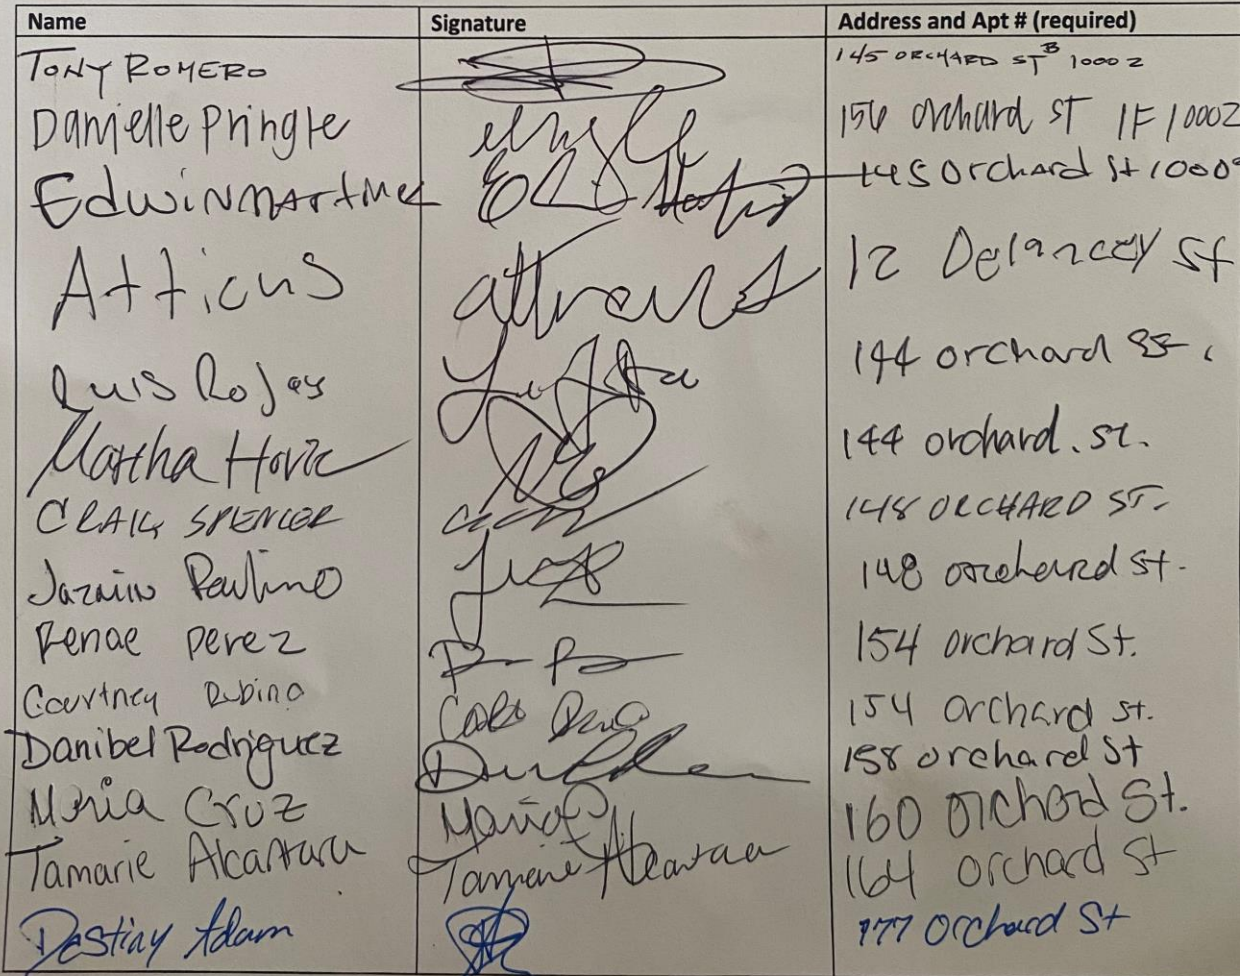 Name Signature Address and Apt # (required)
TONY ROMERO 145 ORCHARD ST B 10002
Danielle Pringle 156 orchard ST 1F 10002
Edwin Martinez 145 Orchard St 1000
Atticus atticus 12 Delancey St
Luis Rojas 144 orchard St.
Martha Hovic 144 orchard. st.
CRAIG SPENCER 148 ORCHARD ST.
Jazmin Paulino 148 orchard St.
Renae perez 154 orchard St.
Courtney Rubino 154 orchard st.
Danibel Rodriguez 158 orchard St
Maria Cruz Maria 160 orchard St.
Tamarie Alcantara Tamarie Alcantara 164 orchard St
Destiny Adam 177 Orchard St